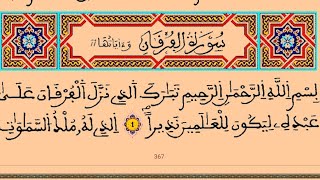 سُورَةُ الْفُرْقَانِ وَءَايَاتُهَا ٧٧
بِسْمِ اللَّهِ الرَّحْمَٰنِ الرَّحِيمِ تَبَٰرَكَ الَّذِي نَزَّلَ الْفُرْقَانَ عَلَىٰ
عَبْدِهِ لِيَكُونَ لِلْعَٰلَمِينَ نَذِيرًا ١ الَّذِي لَهُ مُلْكُ السَّمَٰوَٰتِ
367